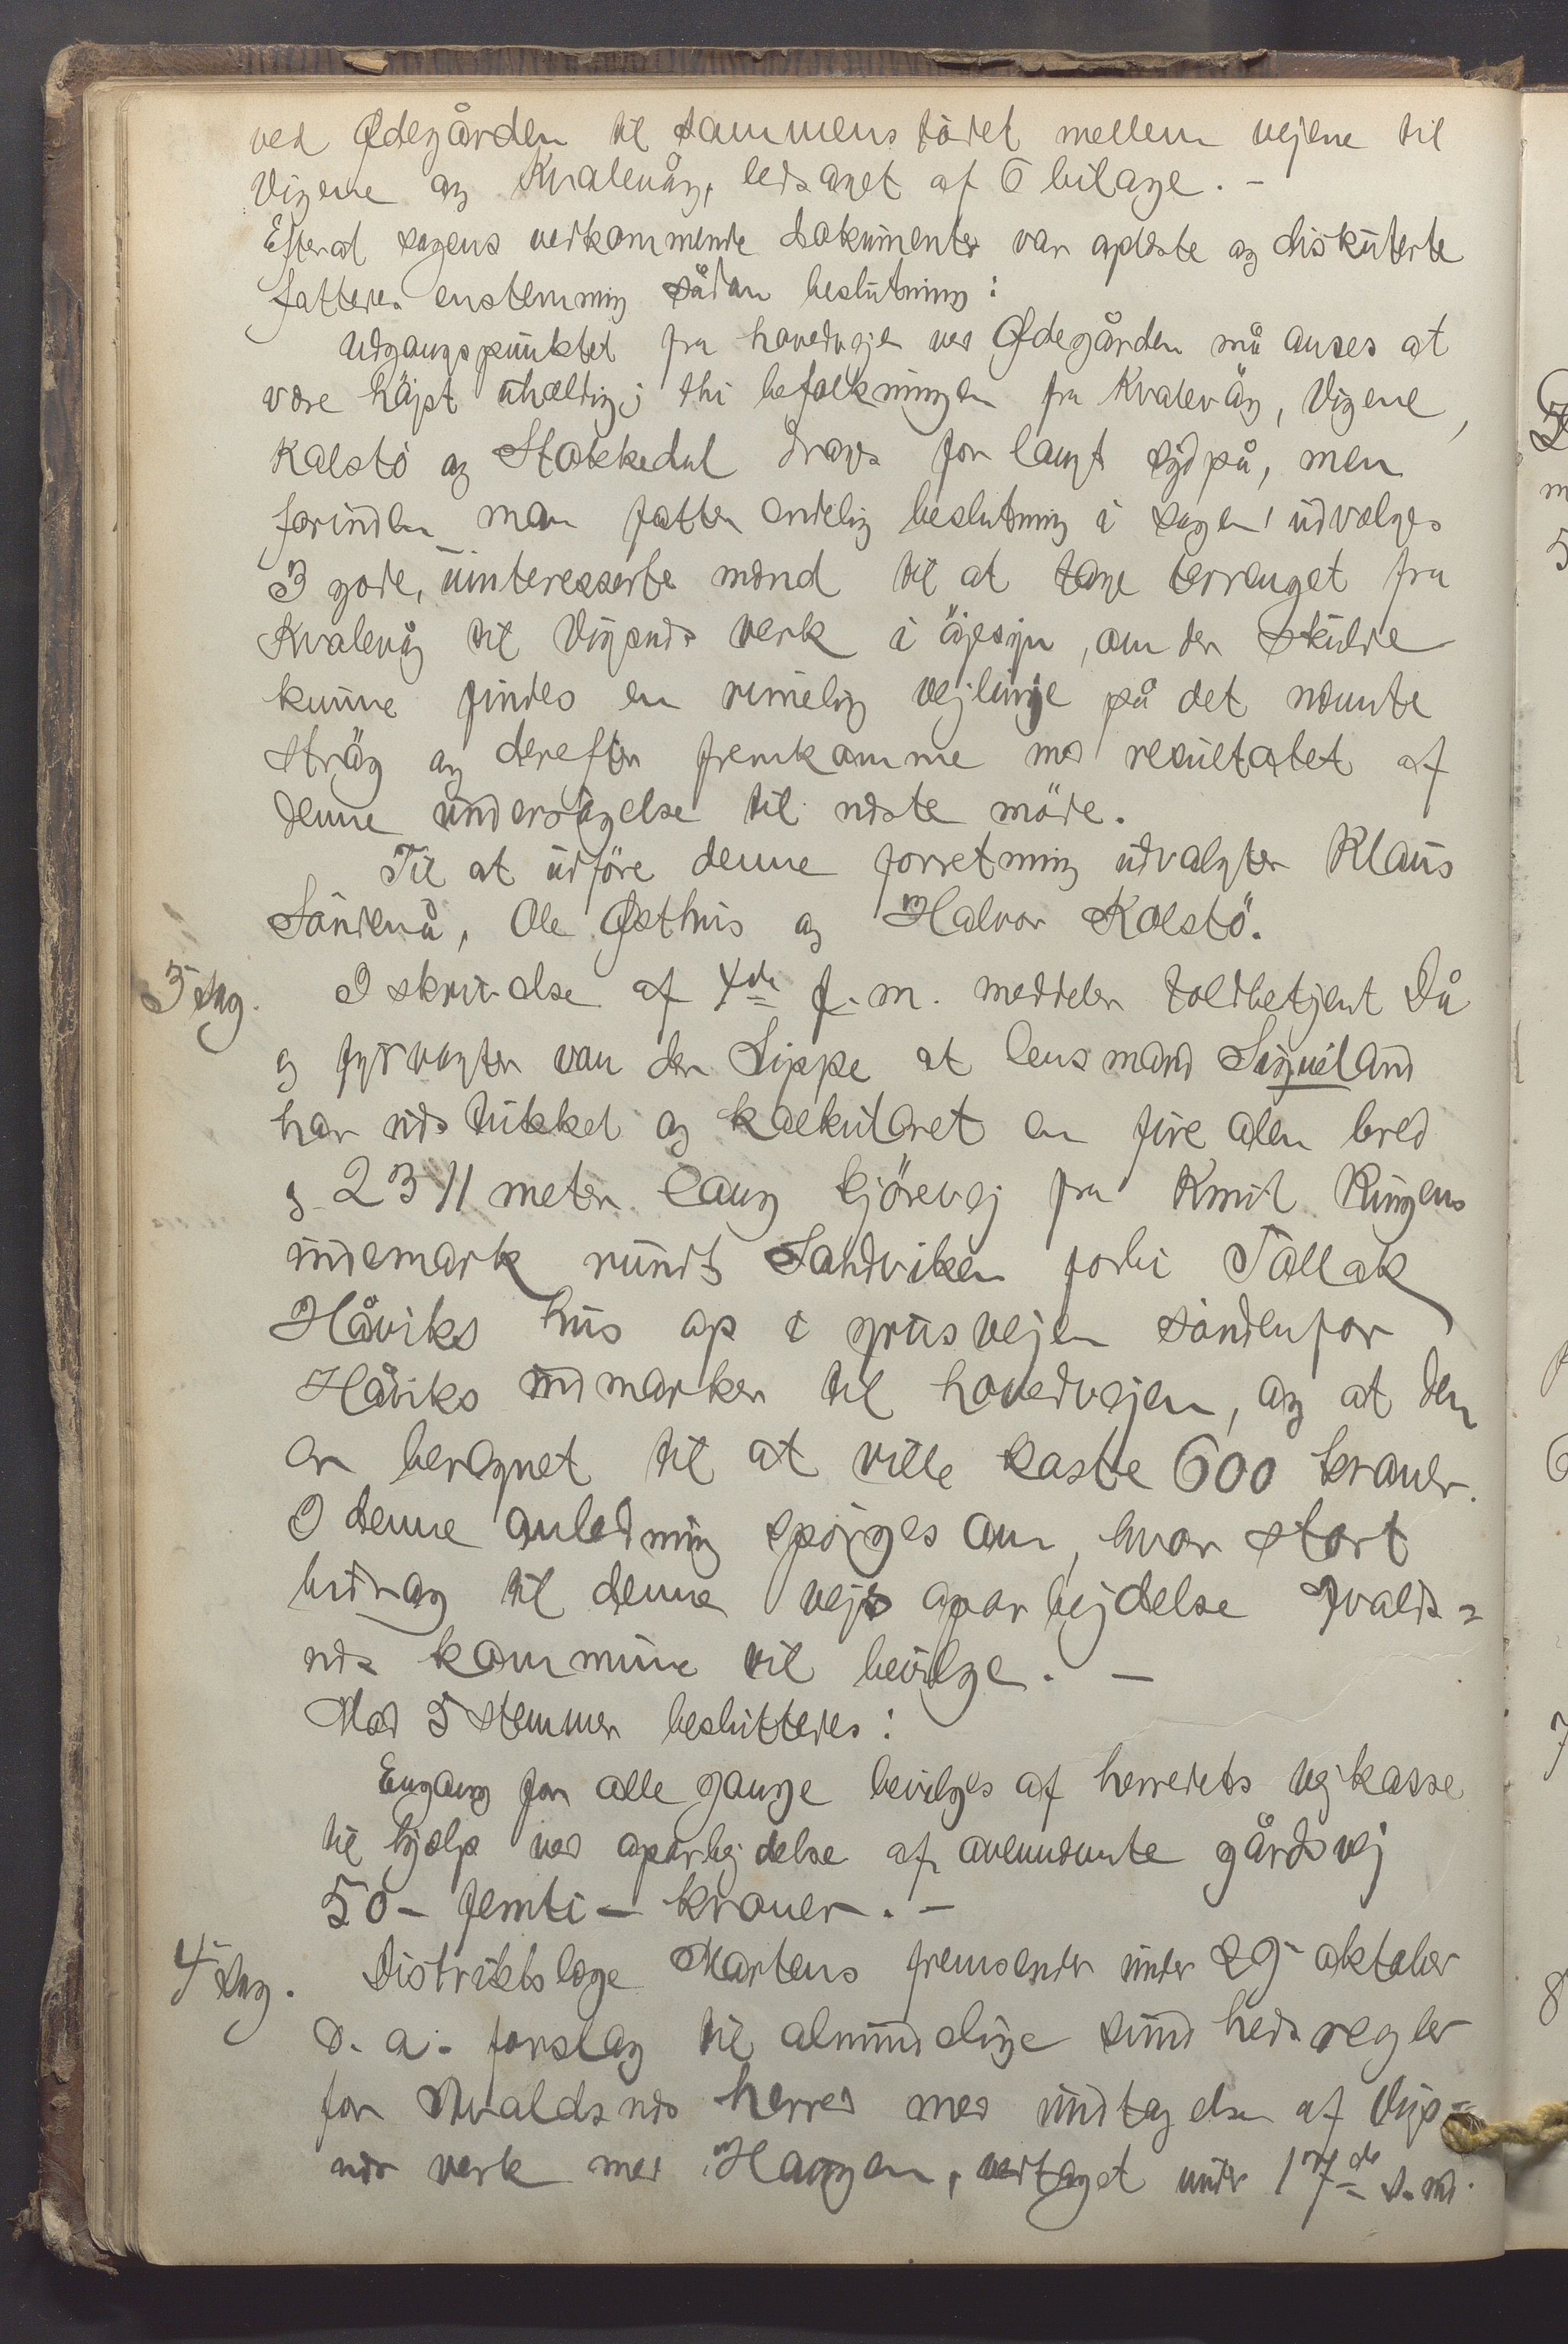 ved Ødegården til sammenstødet mellem vejene til
Vigene og Kvalevåg, ledsaget af 6 bilage. -
Efterat sagens vedkommende dokumenter var oplæste og diskuterte
fattedes enstemmig sådan beslutning:
Udgangspunktet fra hovedvejen ved Ødegården må anses at
være höjst uheldig; thi befolkningen fra Kvalevåg, Vigene,
Kalstö og Stokkedal drages for langt sydpå, men
forinden man fatter endelig beslutning i sagen, udvælges
3 gode, uinteresserte mænd til at tage terrænget fra
Kvalevåg til Vigsnæs værk i öjesyn, om der skulde
kunne findes en rimelig vejlinje på det nævnte
strög og derefter fremkomme med resultatet af
denne undersögelse til næste möde.
Til at udföre denne forretning udvalgtes Klaus
Söndenå, Ole Østhus og Halvor Kolstö.
3 sag. I skrivelse af 4de f. m. meddeler toldbetjent Då
og fyrvogter van der Lippe at lensmand Sigveland
har udstukket og kalkuleret en fire alen bred
og 2311 meter lang kjörevej fra Knut Ringens
indemark rundt Sandviken forbi Tallak
Håviks hus op i grusvejen söndenfor
Håviks indmarker til hovedvejen, og at den
er beregnet til at ville koste 600 kroner.
I denne anledning spörges om, hvor stort
bidrag til denne vejs oparbejdelse Avalds=
næs kommune vil bevilge. -
Mod 5 stemmer besluttedes:
Engang for alle gange bevilges af herredets vejkasse
til hjælp ved oparbejdelse af ovennævnte gårdsvej
50 - femti - kroner. -
4 sag. Distriktslæge Martens fremsender under 29 oktober
d. a. forslag til almindelige sundhedsregler
for Avaldsnæs herred med undtagelse af Vigs=
næs værk med Haugen, vedtaget under 17de s. md.